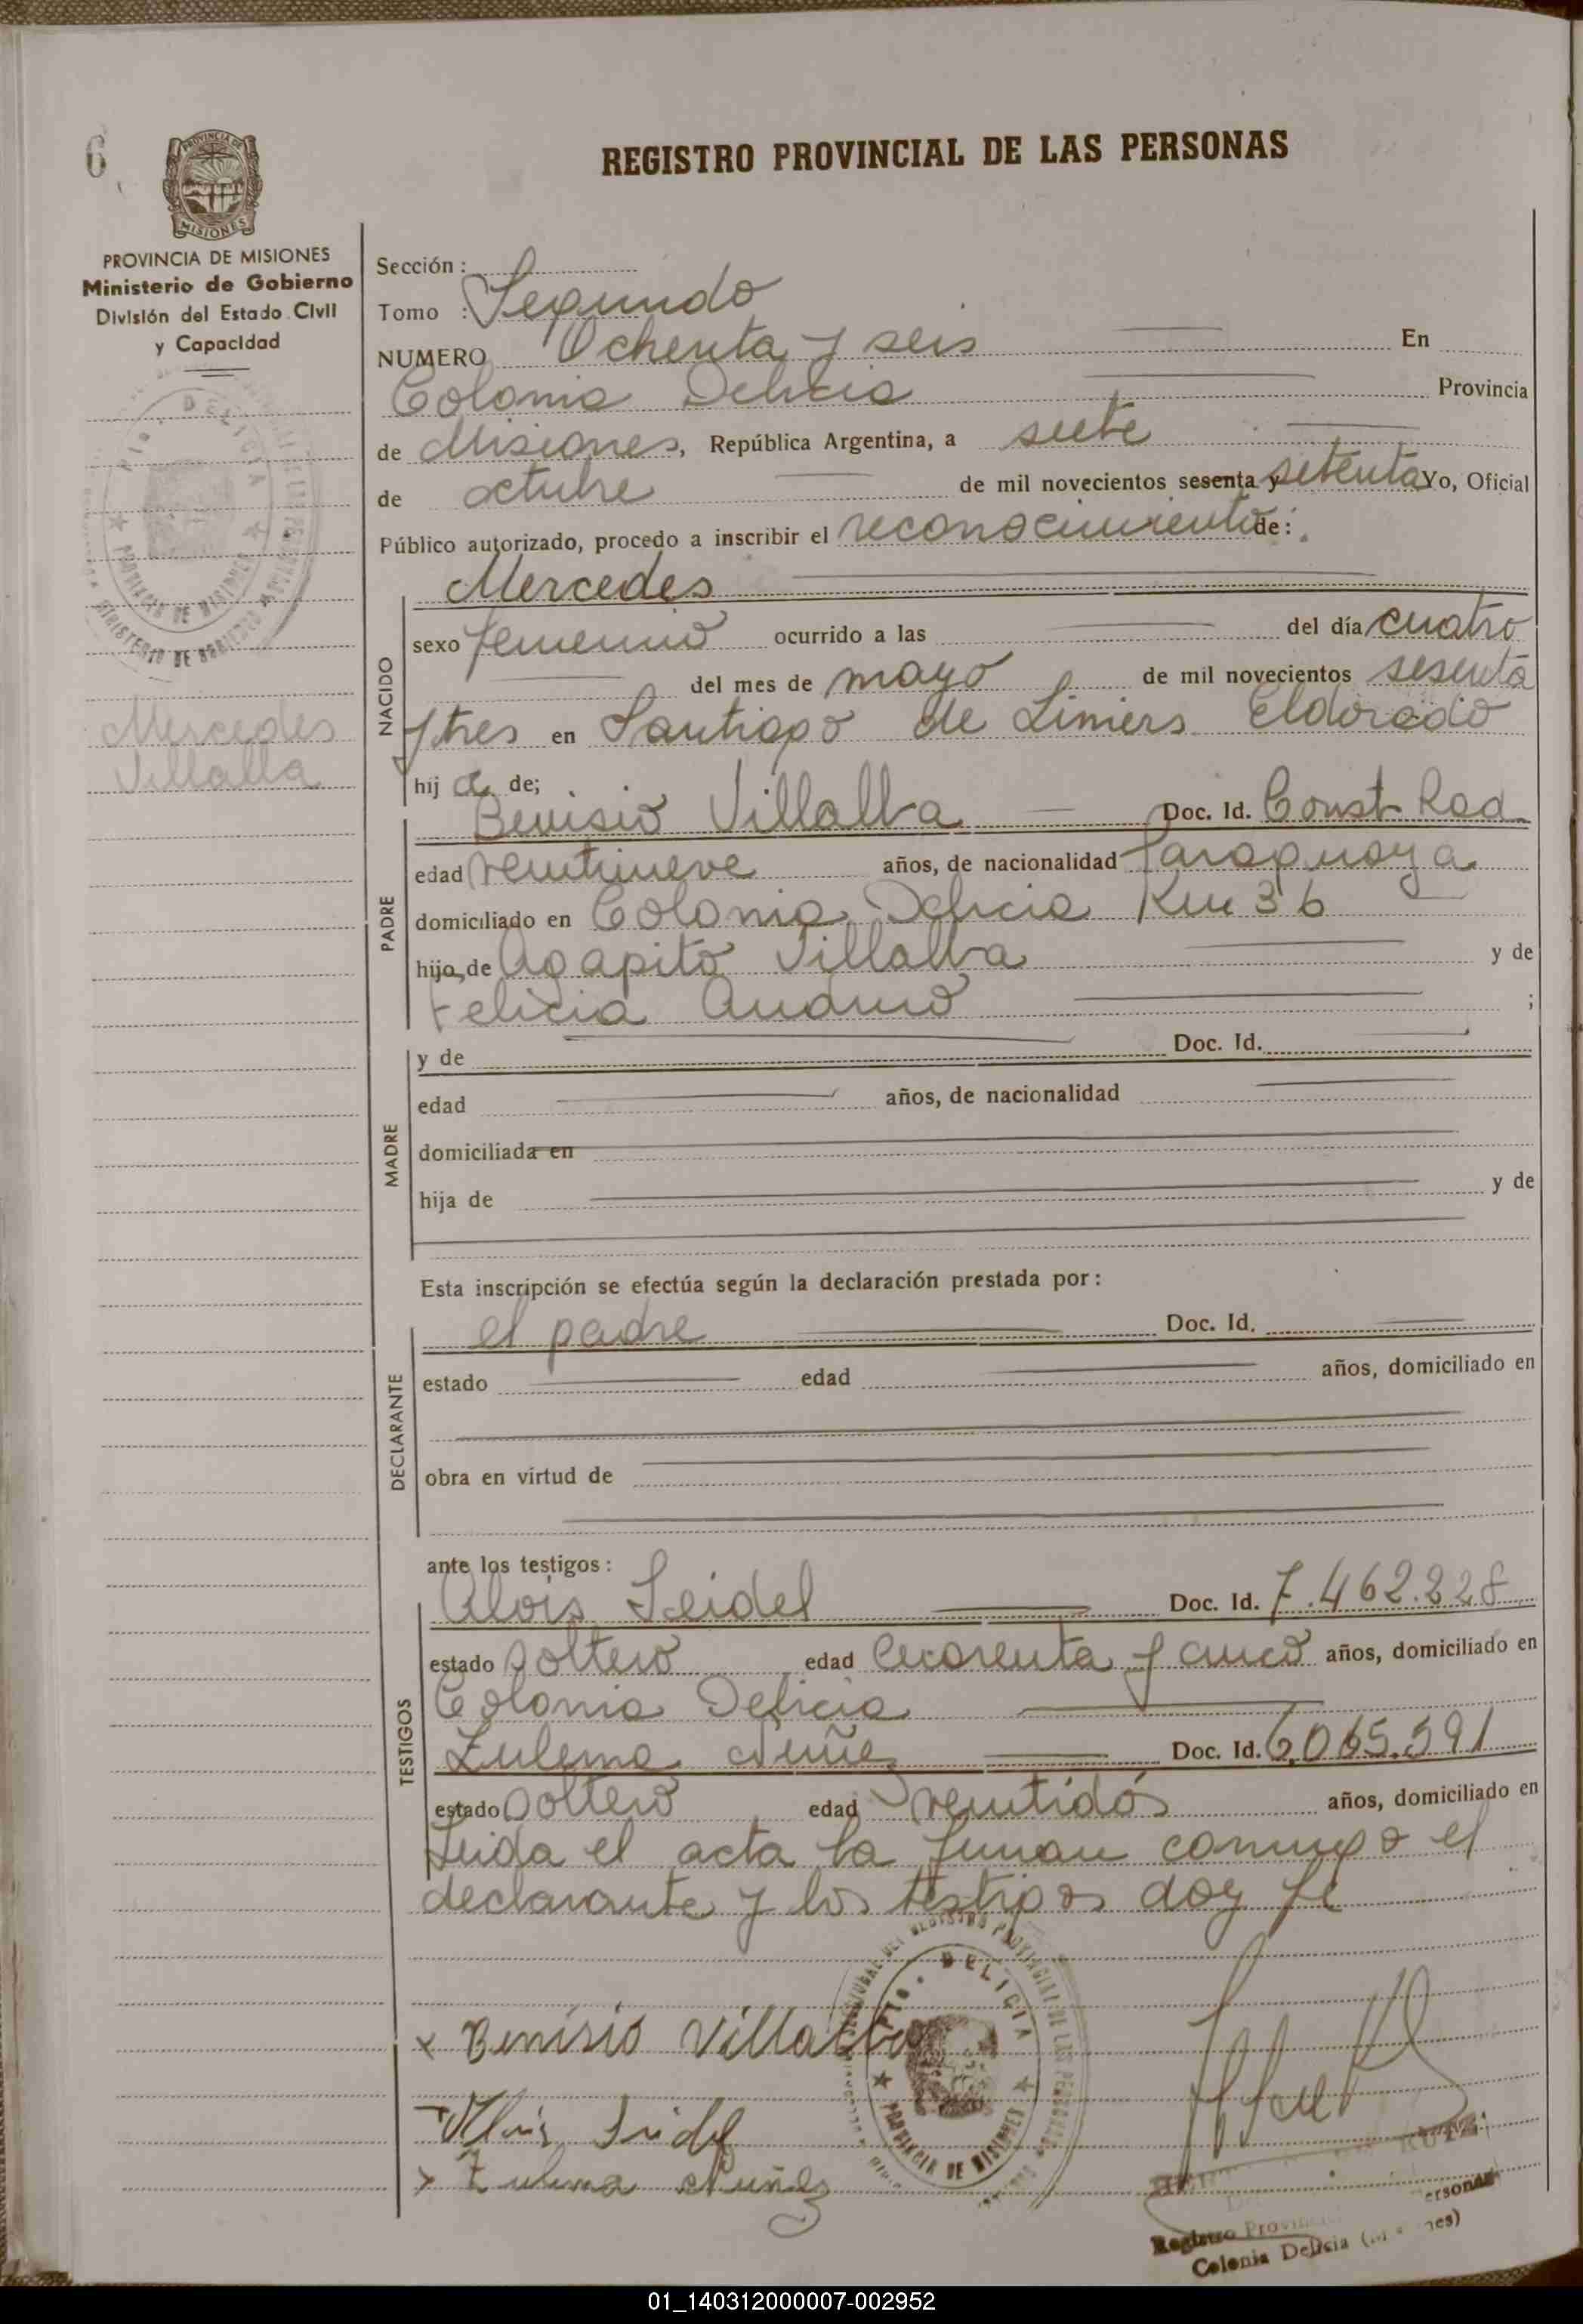 6
REGISTRO PROVINCIAL DE LAS PERSONAS
PROVINCIA DE MISIONES
Ministerio de Gobierno
División del Estado Civil
y Capacidad
Mercedes
Villalba
Sección :
Tomo : Segundo
NUMERO Ochenta y seis En
Colonia Delicia Provincia
de Misiones, República Argentina, a siete
de octubre de mil novecientos sesenta y setenta Yo, Oficial
Público autorizado, procedo a inscribir el reconocimiento de:
NACIDO
Mercedes
sexo femenino ocurrido a las del día cuatro
del mes de mayo de mil novecientos sesenta
y tres en Santiago de Liniers Eldorado
hij a de;
PADRE
Benisio Villalba Doc. Id. Const Rad
edad veintinueve años, de nacionalidad Paraguaya
domiciliado en Colonia Delicia Km 36
hijo de Agapito Villalba y de
Felicia ;
MADRE
y de Doc. Id.
edad años, de nacionalidad
domiciliada en
hija de y de
Esta inscripción se efectúa según la declaración prestada por :
DECLARANTE
el padre Doc. Id.
estado edad años, domiciliado en
obra en virtud de
ante los testigos :
TESTIGOS
Alois Seidel Doc. Id. 7.462.228
estado soltero edad cuarenta y cinco años, domiciliado en
Colonia Delicia
Zulema Nuñez Doc. Id. 6.065.591
estado soltero edad veintidós años, domiciliado en
Leida el acta la firman conmigo el
declarante y los testigos doy fe
x Benisio Villalba
Alois Seidel
x Zulema Nuñez
DELICIA
PROVINCIA DE MISIONES
Registro Provincial
Colonia Delicia
01_140312000007-002952